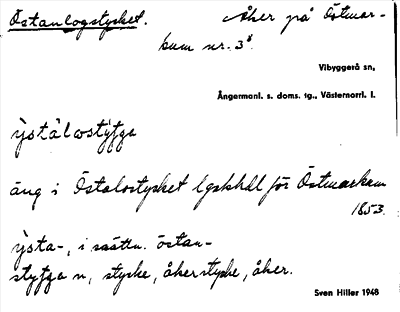 Östanlogstycket. Åker på Östmar-
kum nr. 3⁸.
Vibyggerå sn,
Ångermanl. s. doms. tg., Västernorrl. l.
ỳstálωstýʒga
äng i Östalostycket lgskhdl för Östmarkum
1853.
ỳsta-, i sasättn. östan-
styʒga n, stycke, åkerstycke, åker.
Sven Hiller 1948